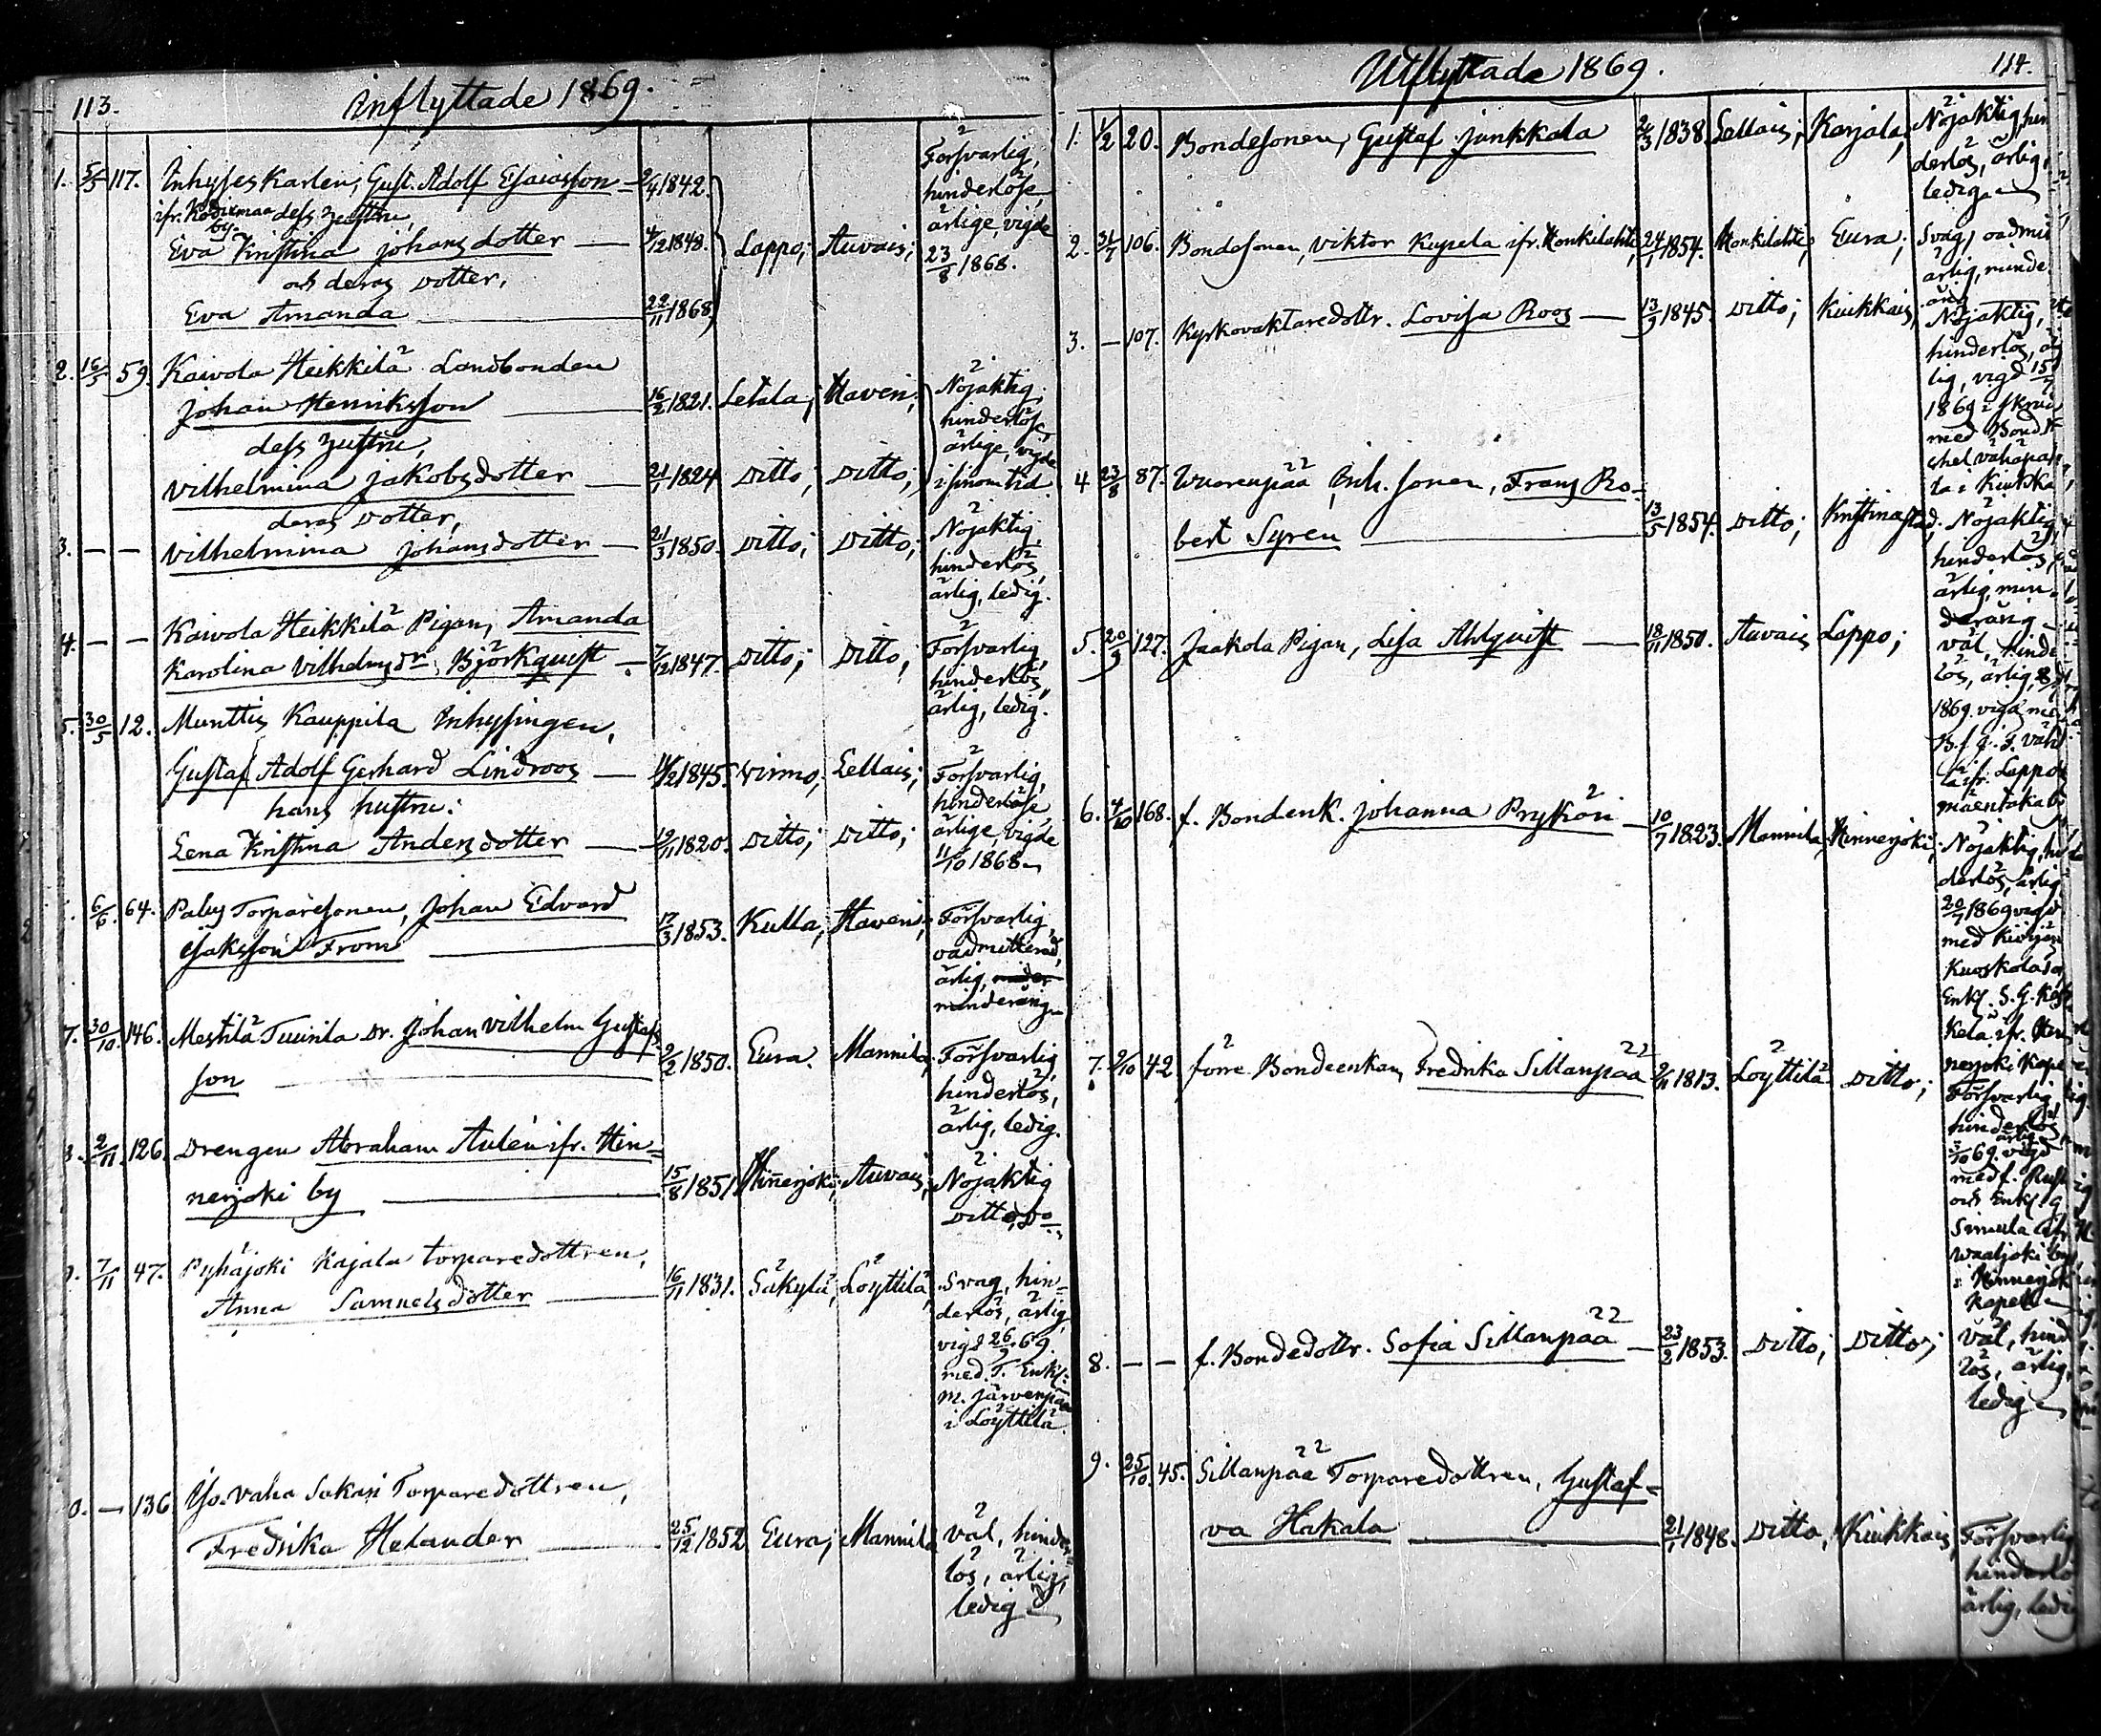 113.
Inflyttade 1869.
1. 5/5 117. Inhyses Karlen, Gust. Adolf Esaiasson 1842.
ifr. Kodixmaa by. dess hustru,
Eva Kristina Johansdotter — 4/12 1848. Lappo; Auvais;
och deras dotter,
Eva Amanda — 22/11 1868
Försvarlig,
hinderlöse,
ärlige, vigde
23/8 1868.
2. 16/5 59. Kaivola Heikkilä Landbonden
Johan Henriksson — 16/2 1821. Letala; Haveri;
dess hustru,
Vilhelmina Jakobsdotter — 21/1 1824 Ditto; Ditto;
Nöjaktig,
hinderlöse,
ärlige, vigde
i sinom tid.
deras dotter,
3. — — Vilhelmina Johansdotter — 21/3 1850. Ditto; Ditto;
Nöjaktig,
hinderlös,
ärlig, ledig.
4. — — Kaivola Heikkilä Pigan, Amanda
Karolina Vilhelmsdr. Björkquist — 7/12 1847. Ditto; Ditto;
Försvarlig,
hinderlös,
ärlig, ledig.
5. 30/5 12. Munttis Kauppila Inhysingen,
Gustaf Adolf Gerhard Lindroos — 1845. Virmo; Lellais;
hans hustru:
Lena Kristina Andersdotter — 1820. Ditto; Ditto;
Försvarlig,
hinderlöse,
ärlige, vigde
11/10 1868.
6/6 64. Palus Torparesonen, Johan Edvard
Isaksson From — 17/3 1853. Kulla; Haveri;
Försvarlig,
oadmitterad,
ärlig,
minderårig
7. 30/10 146. Mestilä Tuurila Dr. Johan Vilhelm Gustafs
son — 2/2 1850. Eura. Mannila;
Försvarlig,
hinderlös,
ärlig, ledig.
2/11 126. Drengen Abraham Aulén ifr. Hin=
nerjoki by — 15/8 1851 Hinerjoki; Auvais;
Nöjaktig
Ditto, Do
7/11 47. Pyhäjoki Kajala torparedottren,
Anna Samuelsdotter — 16/11 1831. Säkylä; Löyttilä;
Svag, hin=
derlös, ärlig
vigd 26/ 69.
med T. Enkl.
M. Järvenpää
i Löyttilä.
— 136 Yso-vaha Sakari Torparedottren,
Fredrika Helander — 25/12 1852 Eura; Mannila
Väl, hinder=
lös, ärlig,
ledig
Utflyttade 1869. 114.
1. 1/2 20. Bondesonen, Gustaf Junkkala 1838. Lellais; Karjala;
Nöjaktig, hin
derlös, ärlig,
ledig.
2. 31/7 106. Bondesonen, Viktor Kupela ifr. Honkilahti, 24/1 1854. Honkilahti; Eura;
Svag, oadmit
ärlig, minder
årig
3. — 107. Kyrkovaktaredottr. Lovisa Roos — 13/9 1845. Ditto; Kiukkais;
Nöjaktig,
hinderlös, är
lig, vigd 15/7
1869
med Bonds
i Kiukka
4 23/8 87. Wuorenpää Inh. sonen, Frans Ro=
bert Syren — 13/5 1854. Ditto; Kristinastad;
Nöjaktig,
hinderlös,
ärlig, min=
derårig
5. 20/9 127. Jaakola Pigan, Lisa Ahlquist — 18/11 1850. Auvais Lappo;
Väl, hinder
lös, ärlig,
1869. vigd med
ifr. Lappo
6. 4/10 168. f. Bondenk. Johanna Prykäri — 10/7 1823. Mannila; Hinnerjoki;
Nöjaktig, hin
derlös, ärlig
20/7 1869 vigd
med
Enkl. S. G.
ifr. Hin
nerjoki Kapell
7. 2/10 42 förre Bondeenkan, Fredrika Sillanpää 1813. Löyttilä Ditto;
Försvarlig,
hinderlös,
ärlig
3/10 69. vigd
med f. Rust
och Enkl. G
Simula ifr.
Waaljoki by,
i Hinnerjoki
Kapell
8. — — f. Bondedottr. Sofia Sillanpää — 23/2 1853. Ditto; Ditto;
Väl, hinder
lös, ärlig,
ledig
9. 25/10 45. Sillanpää Torparedottren, Gustaf=
va Hakala — 21/1 1848. Ditto; Kiukkais;
Försvarlig,
hinderlös
ärlig, ledig